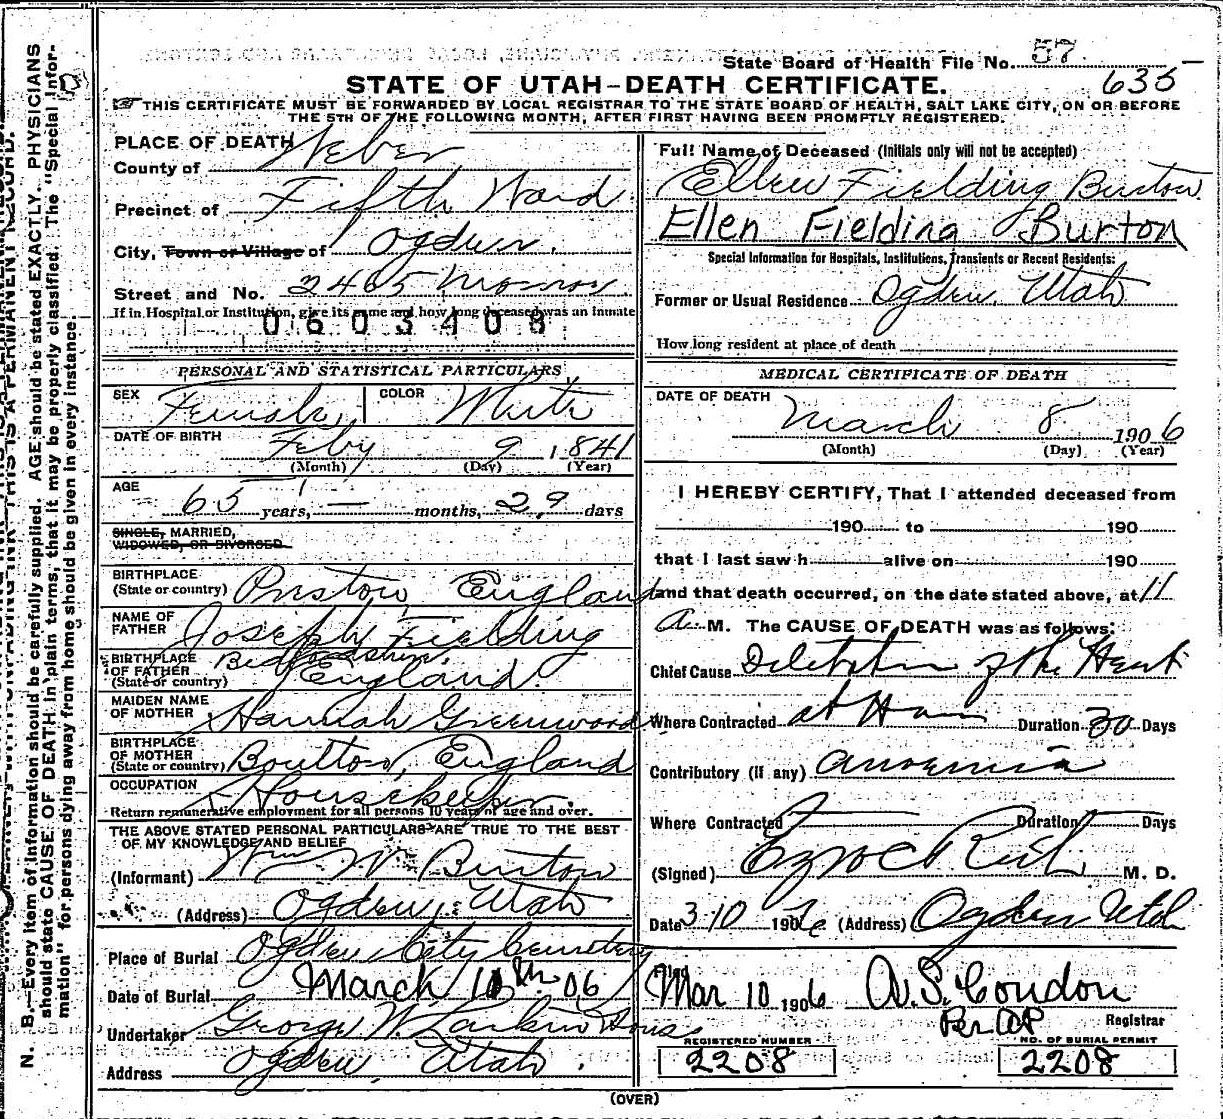 State Board of Health File No. 57
635
STATE OF UTAH-DEATH CERTIFICATE.
THIS CERTIFICATE MUST BE FORWARDED BY LOCAL REGISTRAR TO THE STATE BOARD OF HEALTH, SALT LAKE CITY, ON OR BEFORE
THE 5TH OF THE FOLLOWING MONTH, AFTER FIRST HAVING BEEN PROMPTLY REGISTERED.
PLACE OF DEATH
County of Weber
Precinct of Fifth Ward
City, Town or Village of Ogden.
Street and No. 2465 Monroe
If in Hospital or Institution, give its name and how long deceased was an inmate
0603408
PERSONAL AND STATISTICAL PARTICULARS
SEX Female COLOR White
DATE OF BIRTH Feby 9 1841
(Month) (Day) (Year)
AGE
65 years, — months, 29 days
SINGLE, MARRIED,
WIDOWED, OR DIVORCED
BIRTHPLACE
(State or country) Preston, England
NAME OF
FATHER Joseph Fielding
BIRTHPLACE
OF FATHER
(State or country) Bedfordshire. England.
MAIDEN NAME
OF MOTHER Hannah Greenwood
BIRTHPLACE
OF MOTHER
(State or country) Boulton, England
OCCUPATION
Housekeeper.
Return remunerative employment for all persons 10 years of age and over.
THE ABOVE STATED PERSONAL PARTICULARS ARE TRUE TO THE BEST
OF MY KNOWLEDGE AND BELIEF
(Informant) Wm W. Burton
(Address) Ogden, Utah
Place of Burial Ogden City Cemetery
Date of Burial March 10th 06
Undertaker George W. Larkin & Sons
Address Ogden, Utah.
Full Name of Deceased (Initials only will not be accepted)
Ellen Fielding Burton.
Ellen Fielding Burton
Special Information for Hospitals, Institutions, Transients or Recent Residents:
Former or Usual Residence Ogden, Utah
How long resident at place of death
MEDICAL CERTIFICATE OF DEATH
DATE OF DEATH
March 8 1906
(Month) (Day) (Year)
I HEREBY CERTIFY, That I attended deceased from
190 to 190
that I last saw h alive on 190
and that death occurred, on the date stated above, at 11
a M. The CAUSE OF DEATH was as follows:
Chief Cause Dilatation of the Heart
Where Contracted at Home Duration 30 Days
Contributory (if any) anaemia
Where Contracted Duration Days
(Signed) Ezra C Rich M. D.
Date 3-10 1906 (Address) Ogden Utah
Filed
Mar 10 1906 A. S. Condon
Per AP Registrar
REGISTERED NUMBER NO. OF BURIAL PERMIT
2208 2208
(OVER)
N. B.—Every item of information should be carefully supplied. AGE should be stated EXACTLY. PHYSICIANS
should state CAUSE OF DEATH in plain terms, that it may be properly classified. The "Special Infor-
mation" for persons dying away from home should be given in every instance.